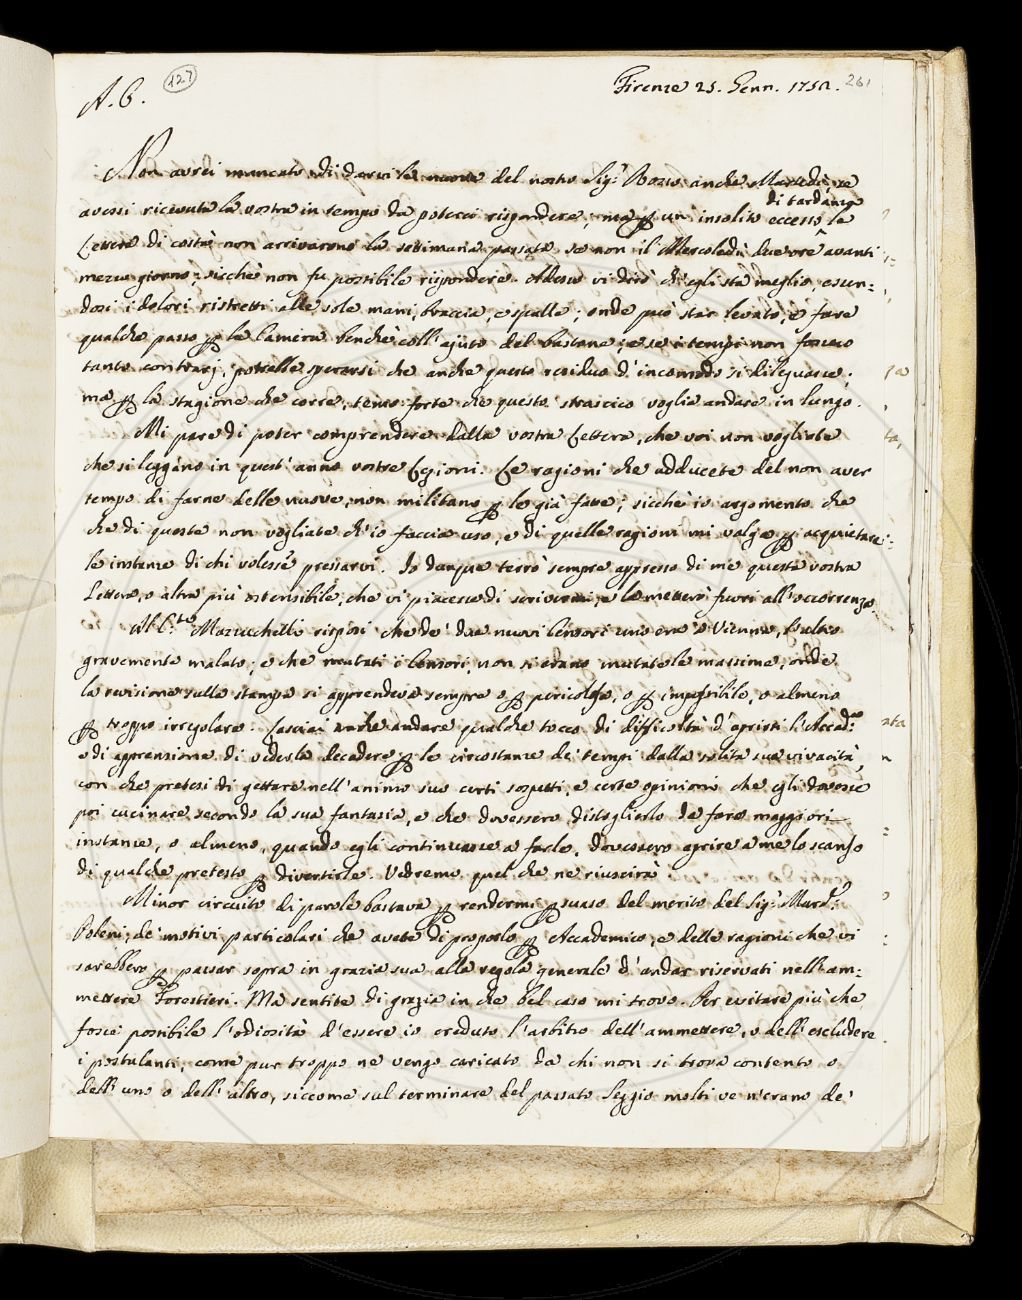 A. C.
127
Firenze 25. Genn. 1752.
261
Non avrei mancato di darvi le nuove del nostro Sig.r Bozio anche Martedì, se
di tardanza
avessi ricevuta la vostra in tempo da potecci rispondere; ma ꝑ un' insolito eccesso le
Lettere di costà non arrivarono la settimana passata se non il Mercoledì due ore avanti
mezzo giorno; sicchè non fu possibile rispondere. Adesso vi dirò ch'egli sta meglio, essen:
dosi i dolori ristretti alle sole mani, braccia, e spalle; onde può star levato, e fare
qualche passo ꝑ la Camera benchè coll'ajuto del bastone; e se i tempi non fossero
tanto contrarj, potrebbe sperarsi che anche questo residuo d'incomodo si dileguasse;
ma ꝑ la stagione che corre, temo forte che questo strascico voglia andare in lungo.
Mi pare di poter comprendere dalla vostra Lettera, che voi non vogliate
che si leggano in quest'anno vostre Lezioni. Le ragioni che adducete del non aver
tempo di farne delle nuove, non militano ꝑ le già fatte; sicchè io argomento che
che di queste non vogliate ch'io faccia uso, e di quelle ragioni mi valga ꝑ acquietare
le instanze di chi volesse pressarvi. Io dunque terrò sempre appresso di me questa vostra
Lettera, o altra più ostensibile, che vi piacesse di scrivermi, e la metterò fuori all'occorrenza.
Al C.te Mazzucchelli risposi che de' due nuovi Censori uno era a Vienna, l'altro
gravemente malato; e che mutati i Censori, non si erano mutate le massime, onde
la revisione sulla stampa si apprendeva sempre o ꝑ pericolosa, o ꝑ impossibile, o almeno
ꝑ troppo irregolare. Lasciai anche andare qualche tocco di difficoltà d'aprirsi l'Accad.a
e di apprensione di vederla decadere ꝑ le circostanze de' tempi dalla solita sua vivacità,
con che pretesi di gettare nell'animo suo certi sospetti, e certe opinioni che egli dovesse
poi cucinare secondo la sua fantasia, e che dovessero distoglierlo da fare maggiori
instanze, o almeno, quando egli continuasse a farle, dovessero aprire a me lo scanso
di qualche pretesto ꝑ divertirle. Vedremo quel che ne riuscirà.
Minor circuito di parole bastava ꝑ rendermi ꝑsuaso del merito del Sig.r March.e
Poleni, de' motivi particolari che avete di proporlo ꝑ Accademico, e delle ragioni che vi
sarebbero ꝑ passar sopra in grazia sua alla regola generale d'andar riservati nell'am:
mettere Forestieri. Ma sentite di grazia in che bel caso mi trovo. Per evitare più che
fosse possibile l'odiosità d'essere io creduto l'arbitro dell'ammettere, o dell'escludere
i postulanti, come pur troppo ne vengo caricato da chi non si trova contento o
dell'uno o dell'altro, siccome sul terminare del passato Seggio molti ve n'erano de'